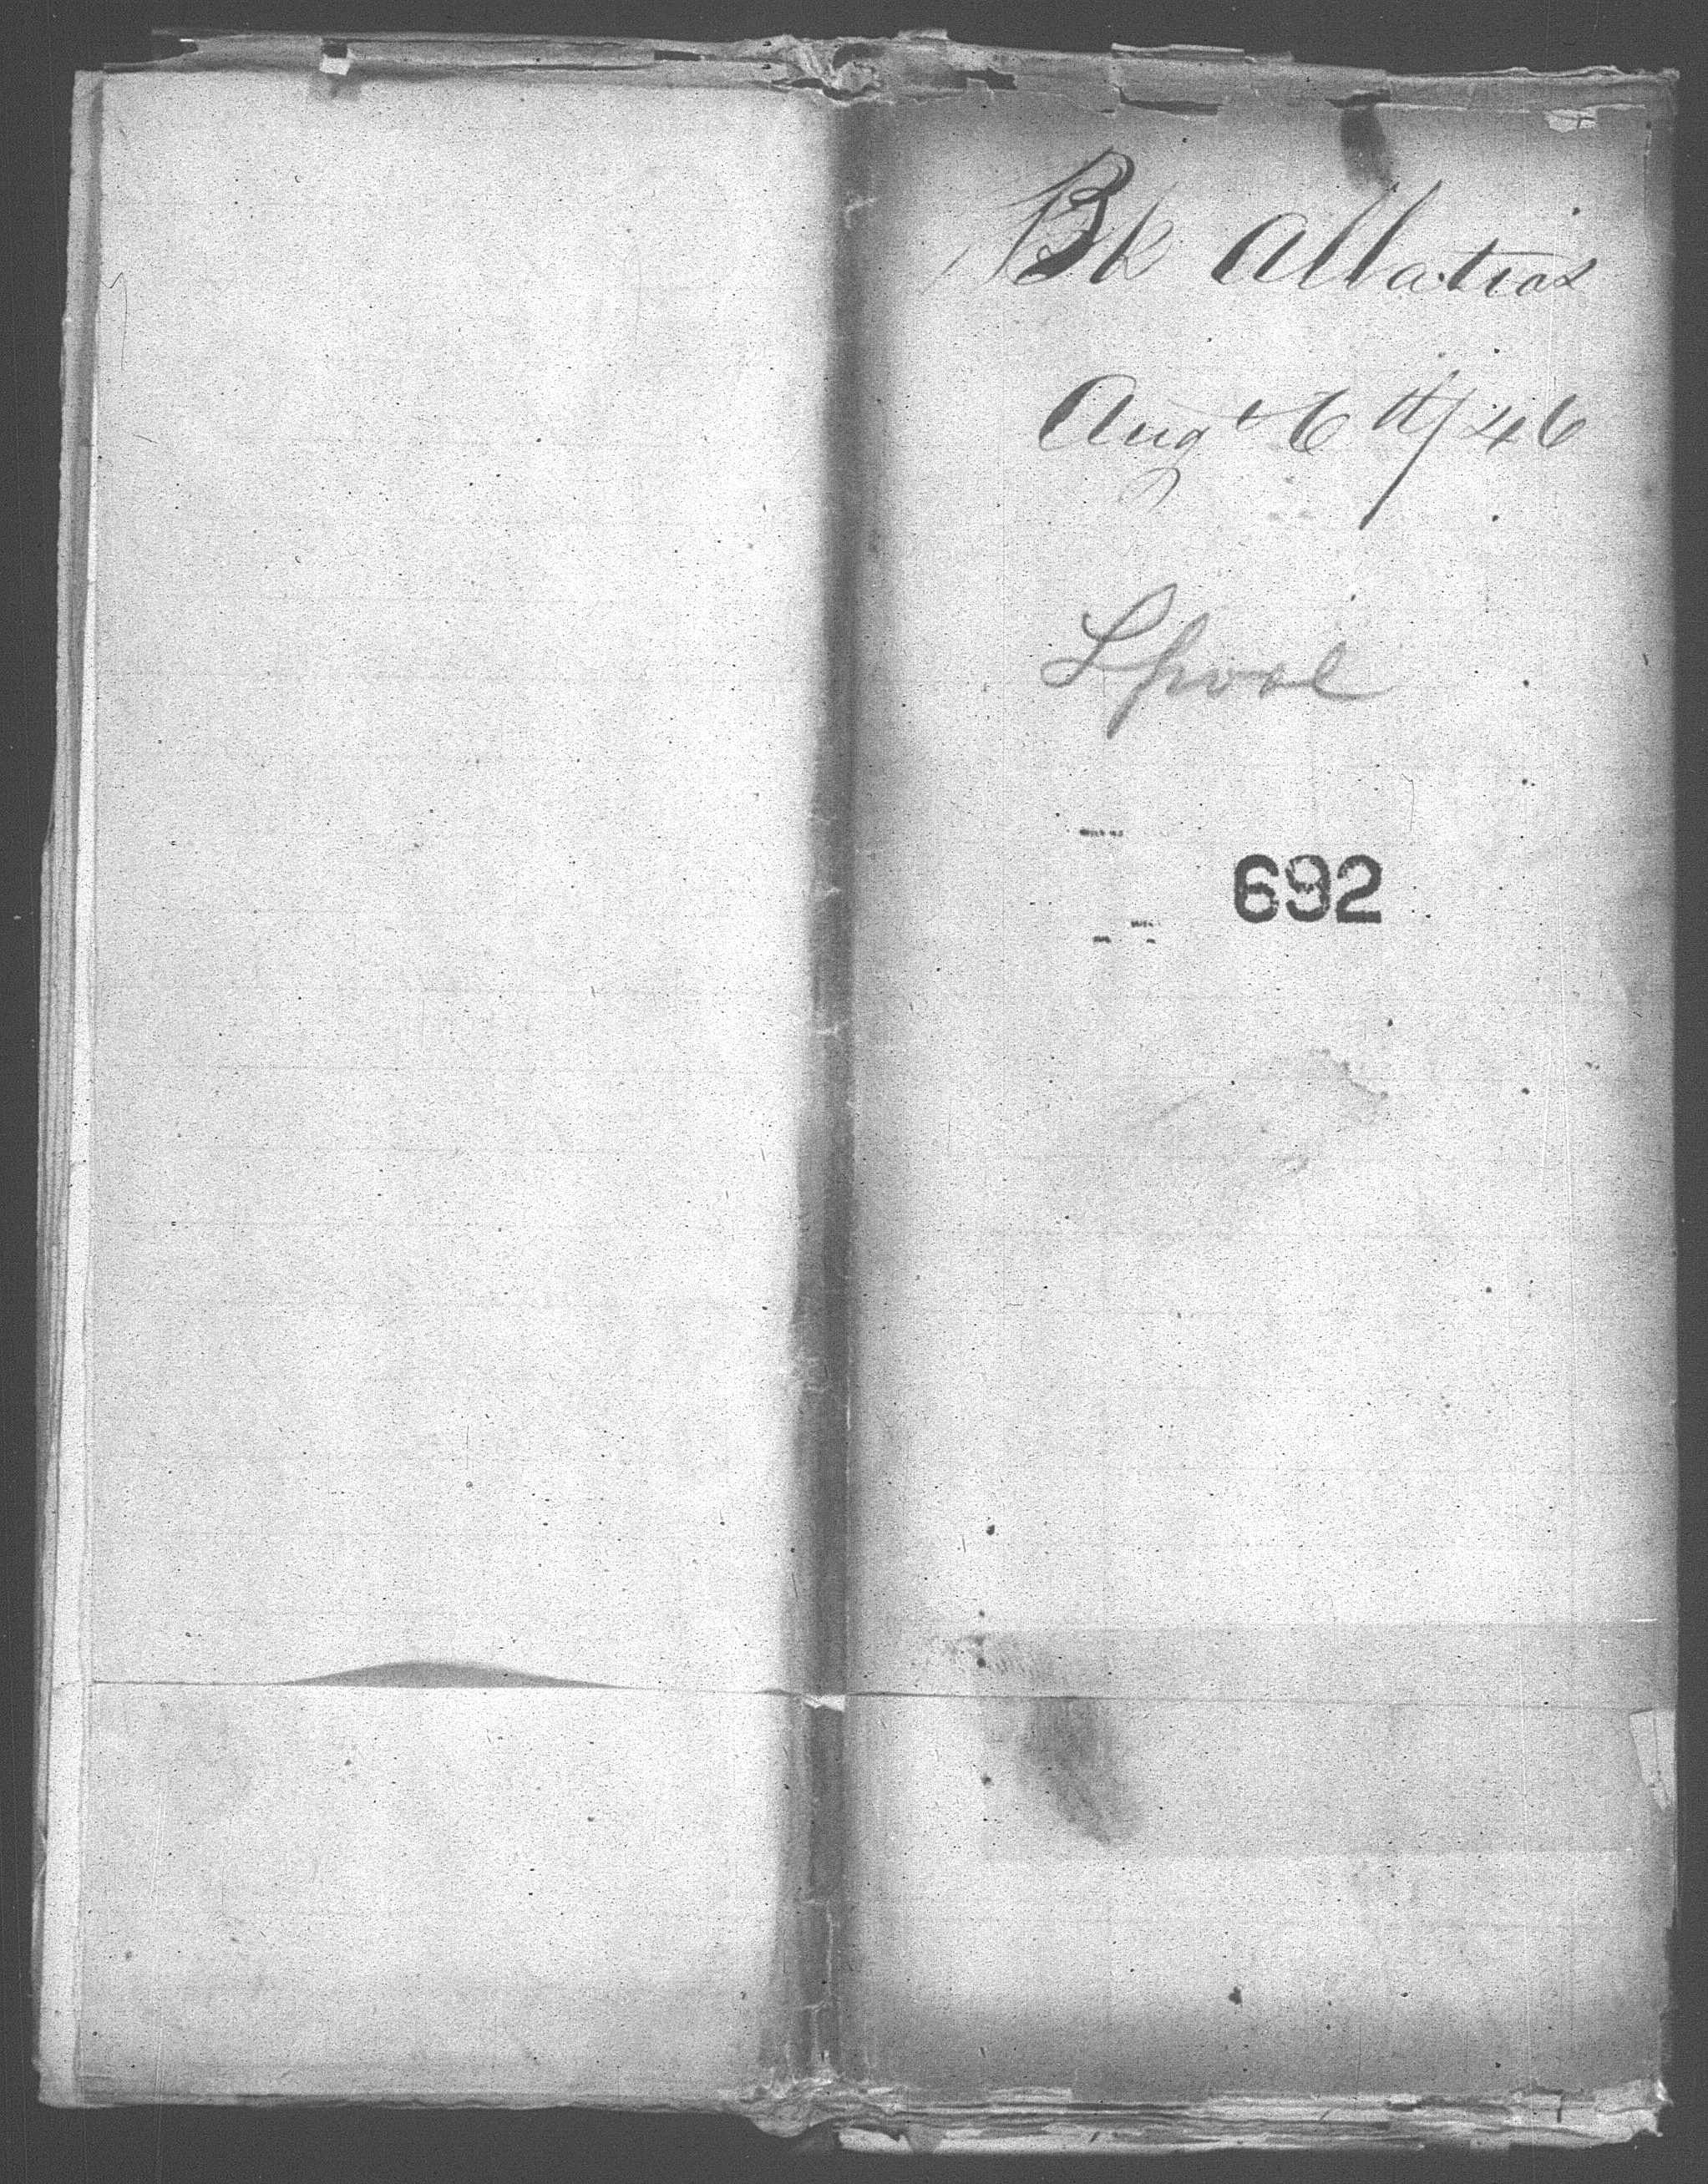 Bk Albatros
Augt 6th/46
Lpool
692